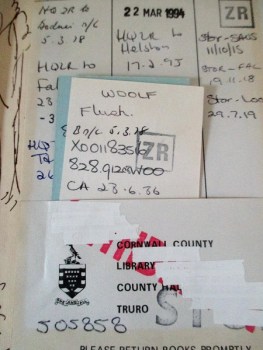 HQLR to
Bodmin n/c
5.3.18
HQLR to
22 MAR 1994
HQLR to
Helston
17.2.95
ZR
Stor-
11/10/15
STOR-FAL
19.11.18
Stor-Loo
29.7.19
WOOLF
Flush.
B n/c 5.3.28
X001183563
ZR
828.912 WOO
CA 23.6.36
CORNWALL COUNTY
LIBRARY
COUNTY HALL
TRURO
505858
PLEASE RETURN BOOKS PROMPTLY